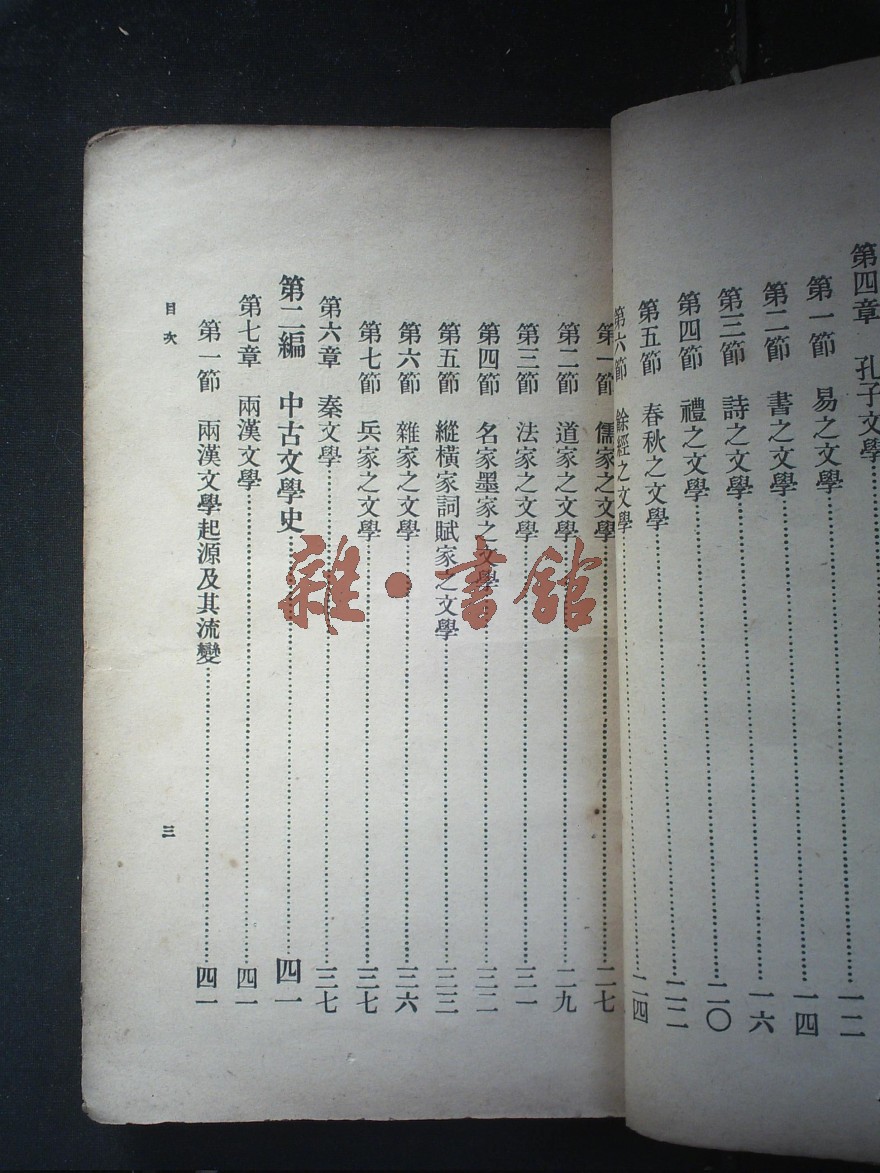 第四章 孔子文學
第一節 易之文學 一二
第二節 書之文學 一四
第三節 詩之文學 一六
第四節 禮之文學 二〇
第五節 春秋之文學 二二
第六節 餘經之文學 二四
第一節 儒家之文學 二七
第二節 道家之文學 二九
第三節 法家之文學 三一
第四節 名家墨家之文學 三二
第五節 縱橫家詞賦家之文學 三三
第六節 雜家之文學 三六
第七節 兵家之文學 三七
第六章 秦文學 三七
第二編 中古文學史 四一
第七章 兩漢文學 四一
第一節 兩漢文學起源及其流變 四一
目次
三
雜·書館